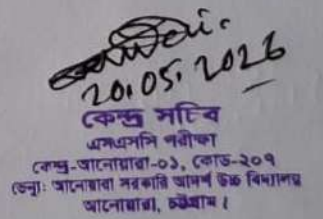 20.05.2026
কেন্দ্র সচিব
এসএসসি পরীক্ষা
কেন্দ্র-আনোয়ারা-০১, কোড-২০৭
ভেন্যু: আনোয়ারা সরকারি আদর্শ উচ্চ বিদ্যালয়
আনোয়ারা, চট্টগ্রাম।